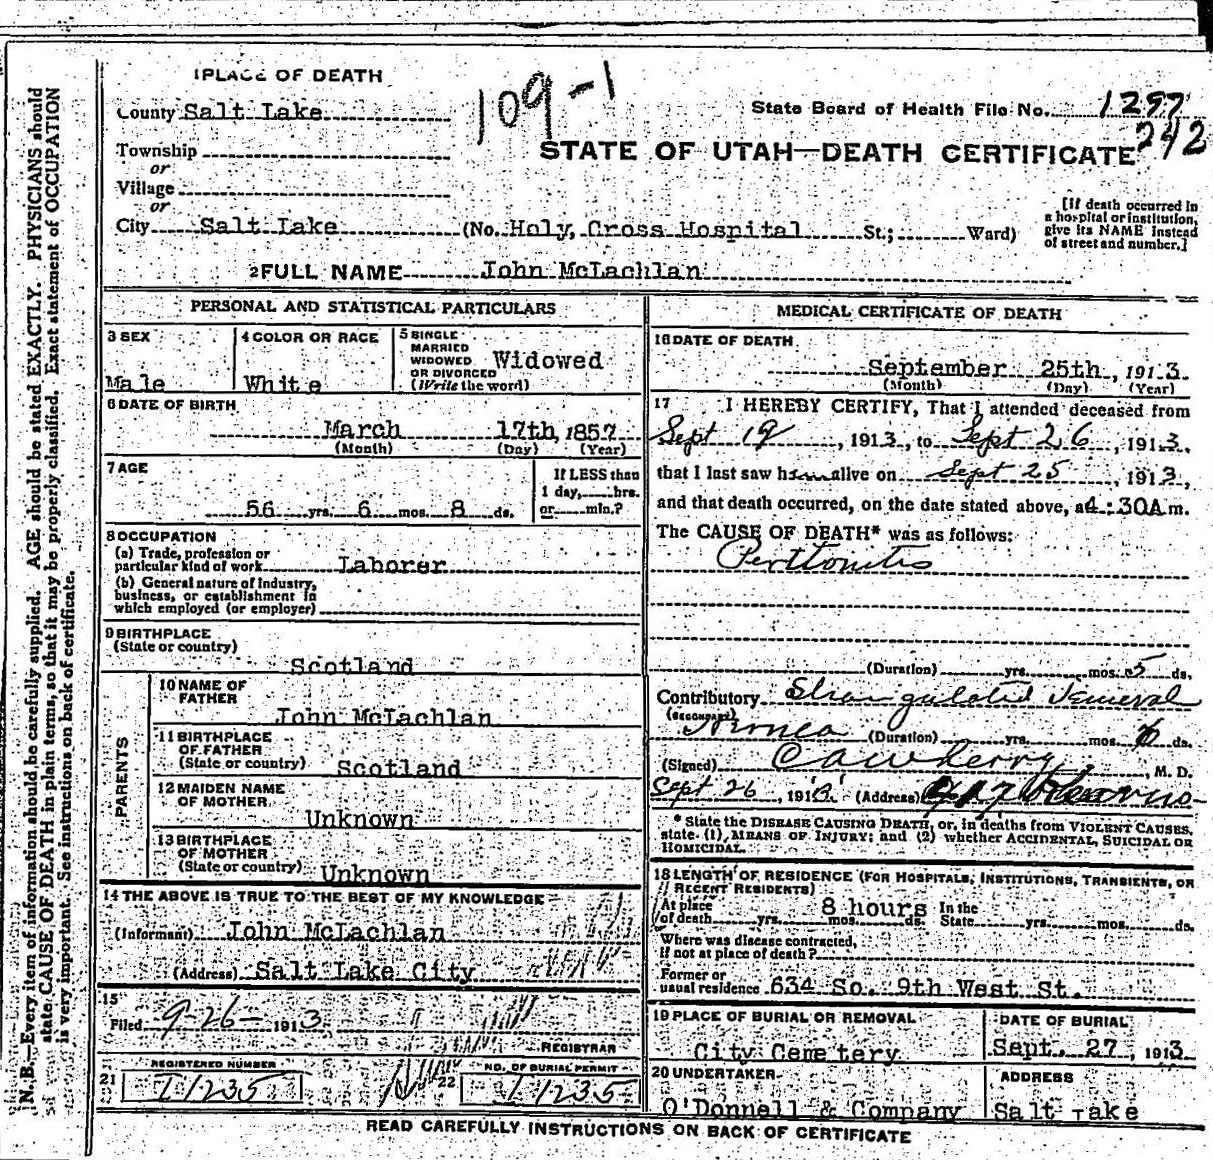 N.B.—Every item of information should be carefully supplied. AGE should be stated EXACTLY. PHYSICIANS should
state CAUSE OF DEATH in plain terms, so that it may be properly classified. Exact statement of OCCUPATION
is very important. See instructions on back of certificate.
1 PLACE OF DEATH
109-1
County Salt Lake
State Board of Health File No. 1297
242
STATE OF UTAH—DEATH CERTIFICATE
Township
or
Village
or
City Salt Lake (No. Holy Cross Hospital St.; Ward)
[If death occurred in
a hospital or institution,
give its NAME instead
of street and number.]
2 FULL NAME John McLachlan
PERSONAL AND STATISTICAL PARTICULARS
3 SEX
Male
4 COLOR OR RACE
White
5 SINGLE
MARRIED
WIDOWED
OR DIVORCED
(Write the word)
Widowed
6 DATE OF BIRTH
March 17th, 1857
(Month) (Day) (Year)
7 AGE
56 yrs. 6 mos. 8 ds.
If LESS than
1 day, hrs.
or min.?
8 OCCUPATION
(a) Trade, profession or
particular kind of work Laborer
(b) General nature of Industry,
business, or establishment in
which employed (or employer)
9 BIRTHPLACE
(State or country)
Scotland
PARENTS
10 NAME OF
FATHER
John McLachlan
11 BIRTHPLACE
OF FATHER
(State or country) Scotland
12 MAIDEN NAME
OF MOTHER
Unknown
13 BIRTHPLACE
OF MOTHER
(State or country) Unknown
14 THE ABOVE IS TRUE TO THE BEST OF MY KNOWLEDGE
(Informant) John McLachlan
(Address) Salt Lake City
15
Filed 9-26- 1913
REGISTRAR
REGISTERED NUMBER
21 11235
NO. OF BURIAL PERMIT
22 11235
MEDICAL CERTIFICATE OF DEATH
16 DATE OF DEATH
September 25th, 1913
(Month) (Day) (Year)
17 I HEREBY CERTIFY, That I attended deceased from
Sept 19, 1913, to Sept 26, 1913,
that I last saw him alive on Sept 25 1913,
and that death occurred, on the date stated above, at 4:30A m.
The CAUSE OF DEATH* was as follows:
Perttonitis
(Duration) yrs. mos. 5 ds.
Contributory Strangulated Femeral
(SECONDARY) Hernea (Duration) yrs. mos. 6 ds.
(Signed) M. D.
Sept 26, 1913 (Address)
* State the DISEASE CAUSING DEATH, or, in deaths from VIOLENT CAUSES,
state (1), MEANS OF INJURY; and (2) whether ACCIDENTAL, SUICIDAL OR
HOMICIDAL.
18 LENGTH OF RESIDENCE (FOR HOSPITALS, INSTITUTIONS, TRANSIENTS, OR
RECENT RESIDENTS)
At place 8 hours In the
of death yrs. mos. ds. State yrs. mos. ds.
Where was disease contracted,
If not at place of death?
Former or
usual residence 634 So. 9th West St.
19 PLACE OF BURIAL OR REMOVAL
City Cemetery
DATE OF BURIAL
Sept. 27, 1913
20 UNDERTAKER
O'Donnell & Company
ADDRESS
Salt Lake
READ CAREFULLY INSTRUCTIONS ON BACK OF CERTIFICATE